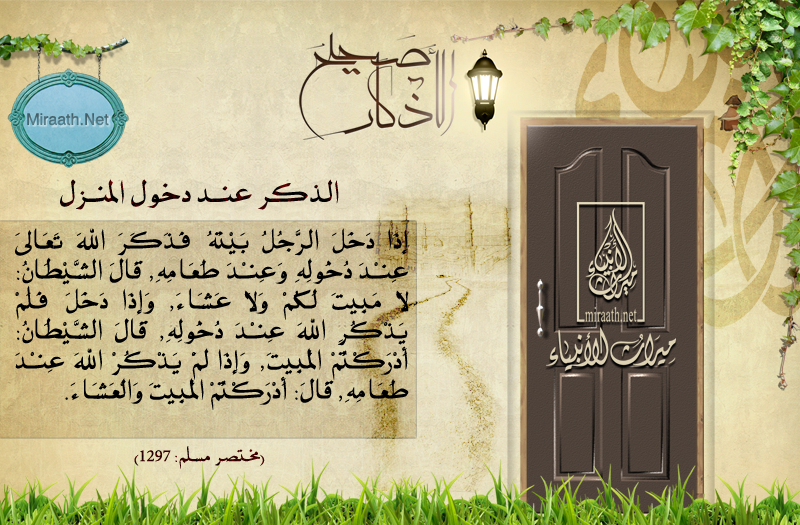 صحيح
الأذكار
Miraath.Net
الذكر عند دخول المنزل
إِذَا دَخَلَ الرَّجُلُ بَيْتَهُ فَذَكَرَ اللهَ تَعَالَى
عِنْدَ دُخُولِهِ وَعِنْدَ طَعَامِهِ, قَالَ الشَّيْطَانُ:
لا مَبِيتَ لَكُمْ وَلا عَشَاءَ, وَإِذَا دَخَلَ فَلَمْ
يَذْكُرِ اللهَ عِنْدَ دُخُولِهِ, قَالَ الشَّيْطَانُ:
أَدْرَكْتُمُ المَبِيتَ, وَإِذَا لَمْ يَذْكُرْ اللهَ عِنْدَ
طَعَامِهِ, قَالَ: أَدْرَكْتُمْ المَبِيتَ وَالعَشَاءَ.
(مختصر مسلم: 1297)
ميراث الأنبياء
miraath.net
ميراث الأنبياء